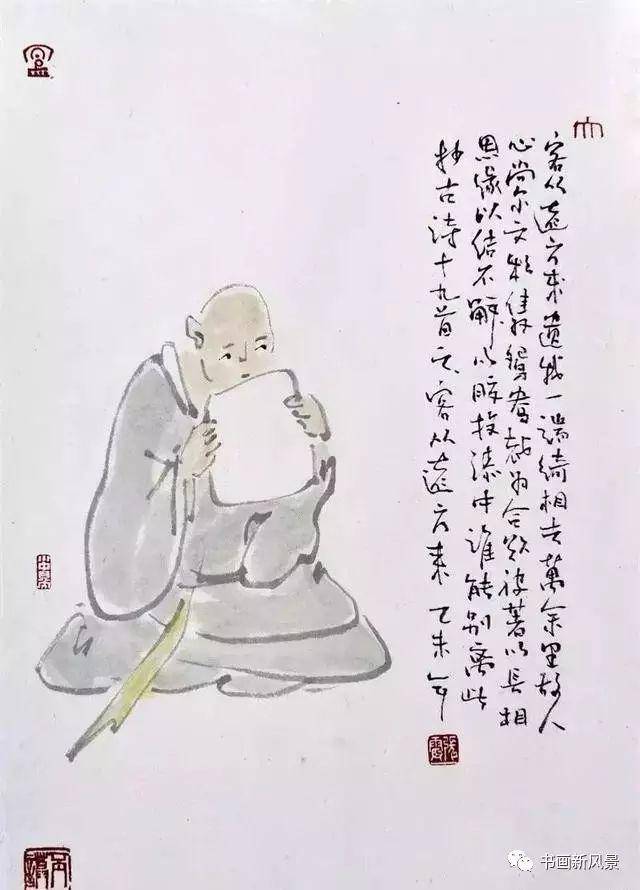 客从遠方来遺我一端綺相去萬余里故人
心尚尔文彩双鴛鴦裁为合欢被著以長相
思缘以结不解以胶投漆中誰能别离此
抄古诗十九首之客从遠方来 乙未年
书画新风景